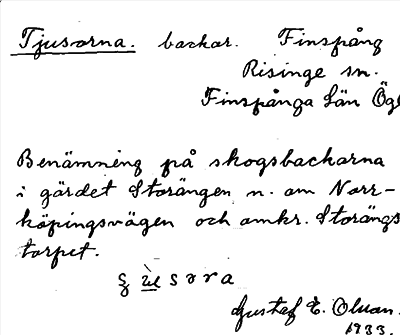 Tjusorna. backar. Finspång
Risinge sn.
Finspånga Län Ögl
Benämning på skogsbackarna
i gärdet Storängen n. om Norr-
köpingsvägen och omkr. Storängs
torpet.
Gustaf E. Olsson.
1933.